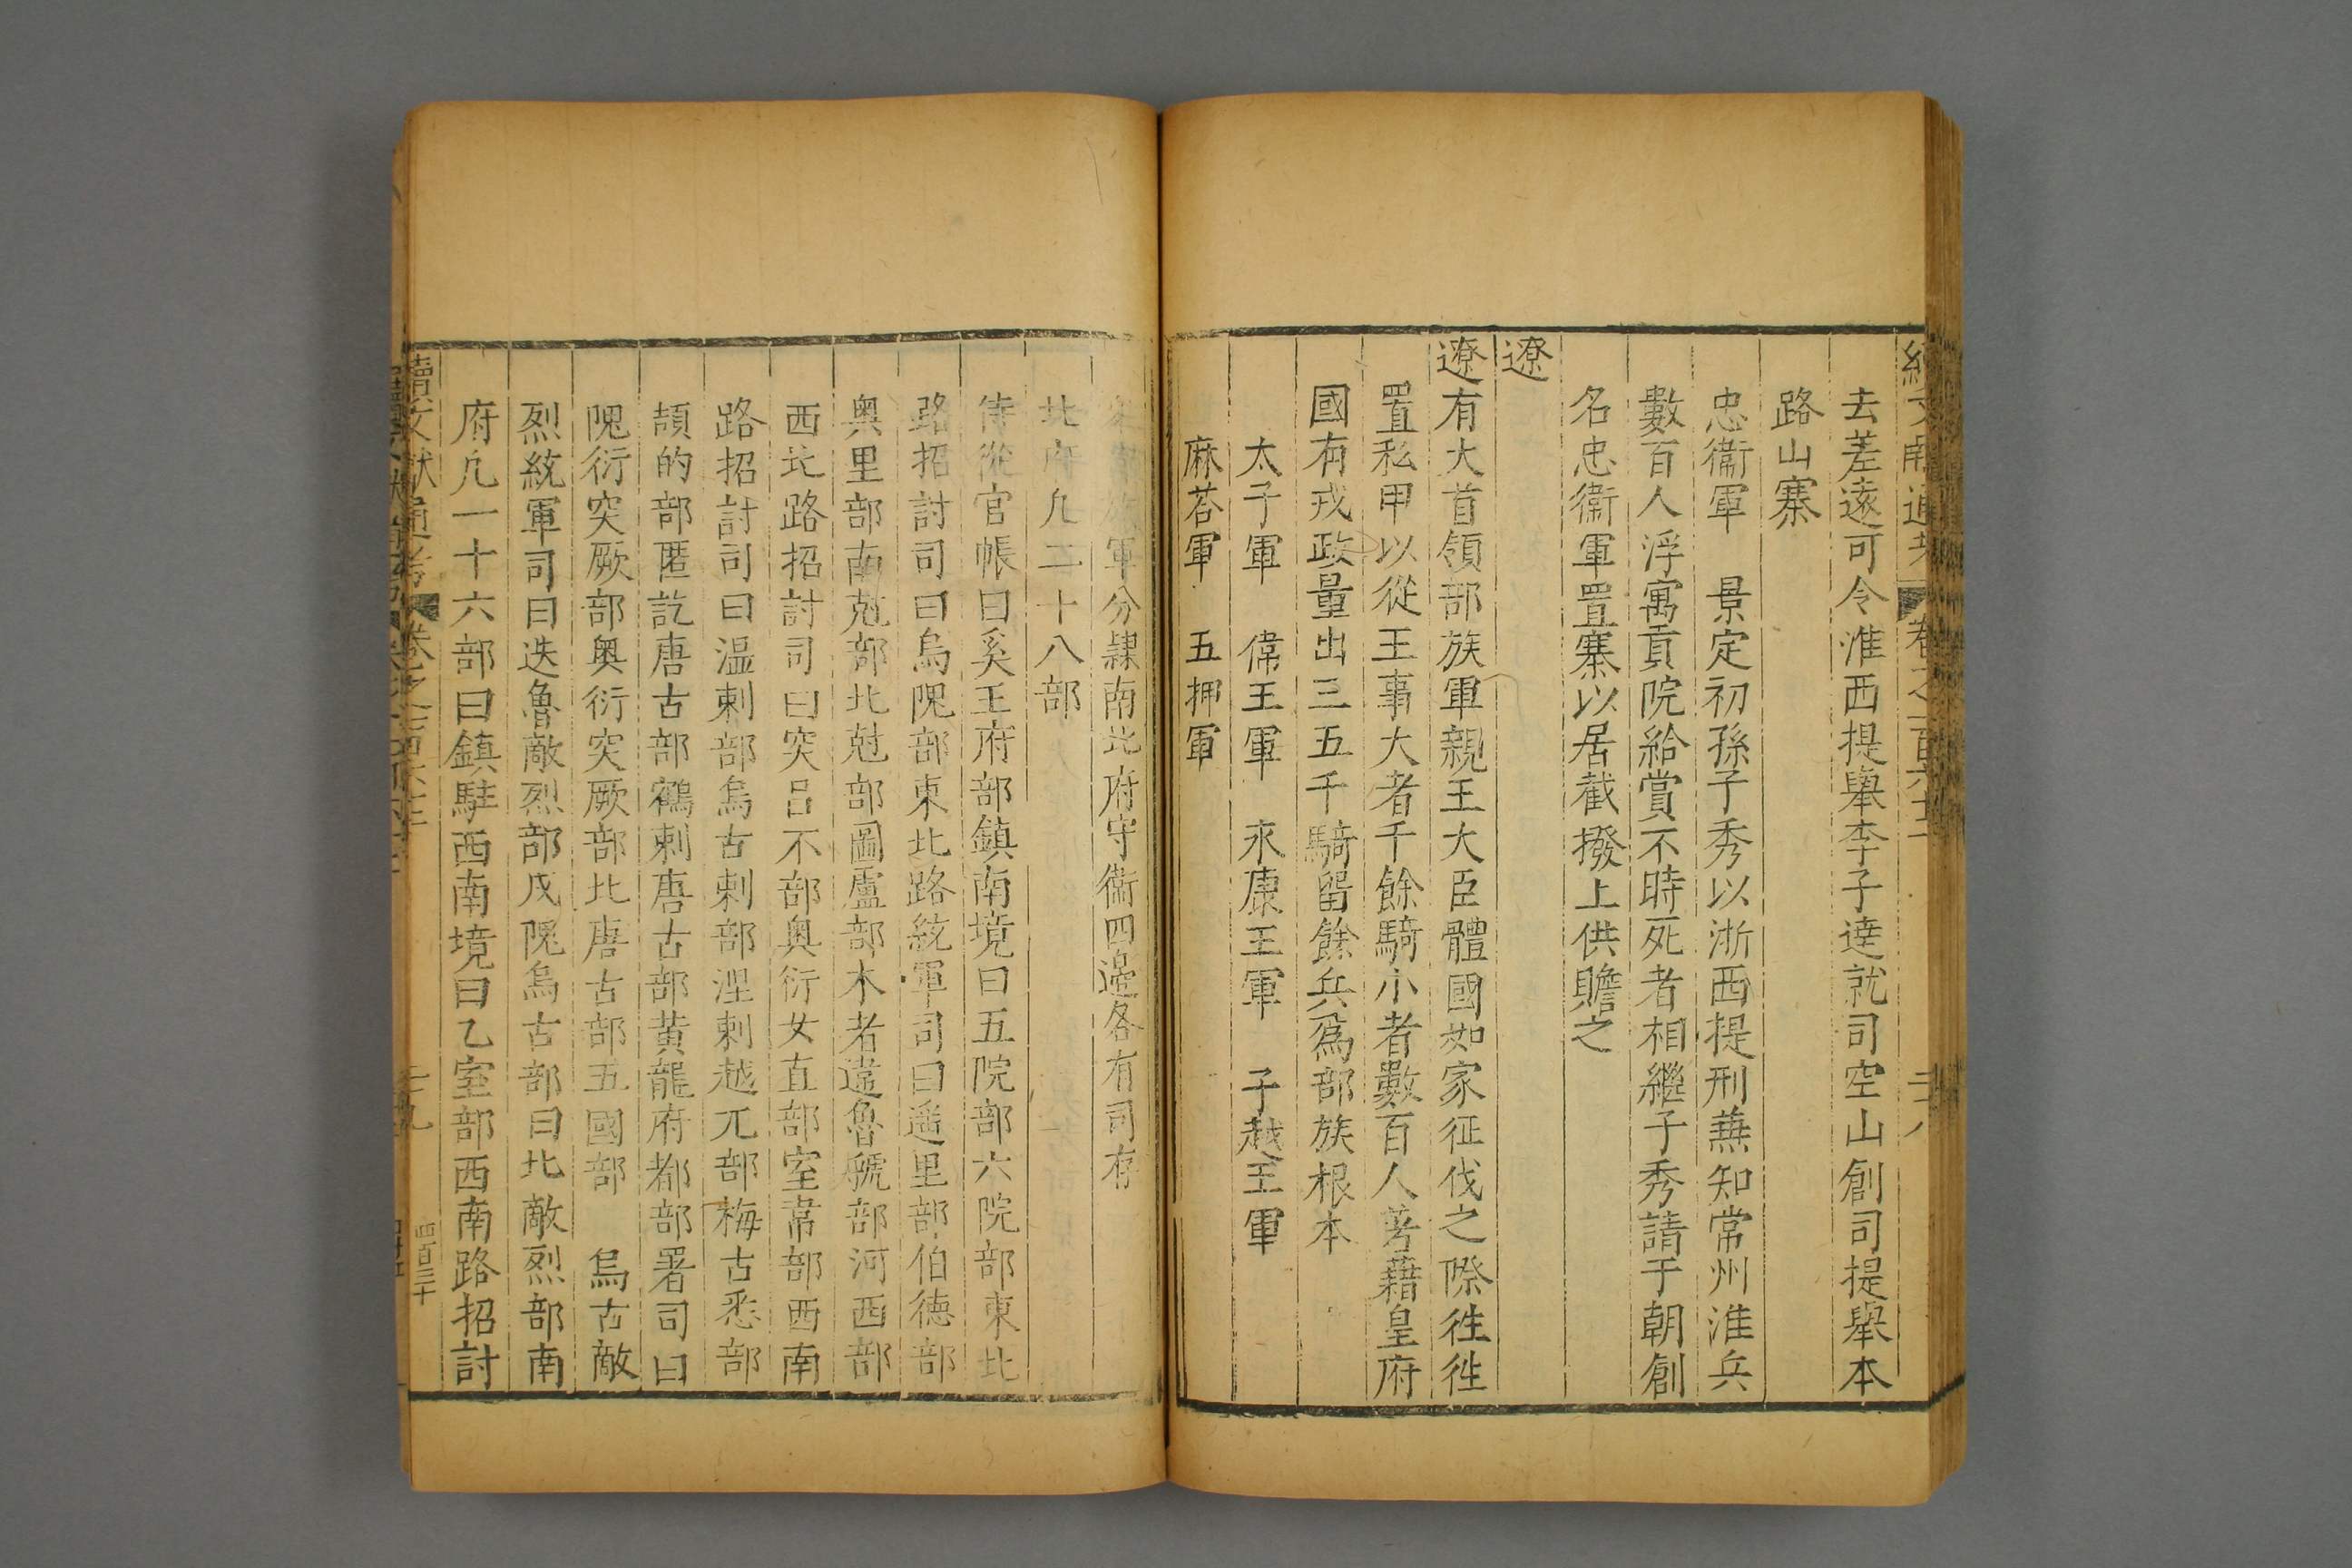 去差遠可令淮西提舉李子達就司空山創司提舉本
路山寨
忠衞軍　景定初孫子秀以浙西提刑蕪知常州淮兵
數百人浮寓貢院給賞不時死者相繼子秀請于朝創
名忠衞軍置寨以居截撥上供贍之
遼
遼有大首領部族軍親王大臣體國如家征伐之際徃徃
置私甲以從王事大者千餘騎小者數百人著籍皇府
國有戎政量出三五千騎留餘兵爲部族根本
太子軍　偉王軍　永康王軍　子越王軍
麻荅軍　五押軍
軍分隷南北府守衞四邊各有司存
北府凡二十八部
侍從官帳曰奚王府部鎮南境曰五院部六院部東北
路招討司曰烏隗部東北路統軍司曰遥里部伯德部
奥里部南剋部北尅部圖盧部木者達魯虢部河西部
西北路招討司曰突呂不部奥衍女直部室韋部西南
路招討司曰温剌部烏古剌部涅剌越兀部梅古悉部
頡的部匿訖唐古部鶴剌唐古部黄龍府都部署司曰
隗衍突厥部奥衍突厥部北唐古部五國部　烏古敵
烈統軍司曰迭魯敵烈部戍隗烏古部曰北敵烈部南
府凡一十六部曰鎮駐西南境曰乙室部西南路招討
續文獻通考　卷之一百六十二　二十九　四百三十